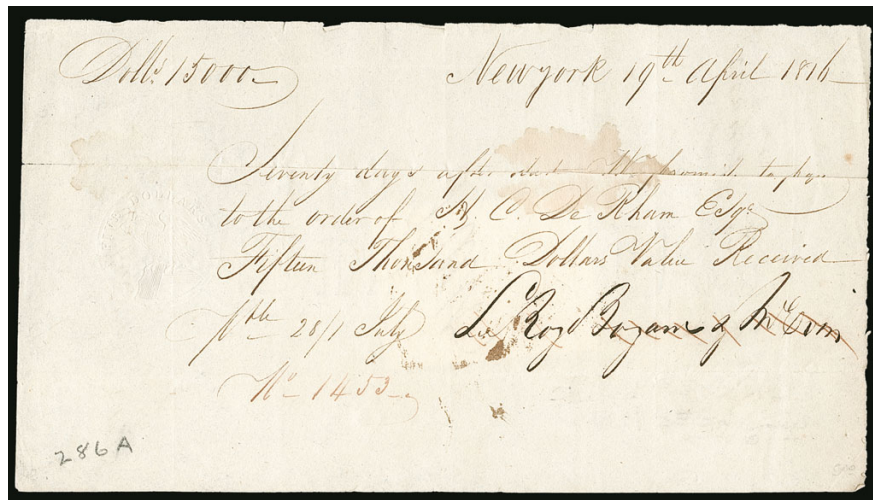 Dolls. 15000 Newyork 19th April 1816
Seventy days after date We promise to pay
to the order of H. C. De Rham Esqr.
Fifteen Thousand Dollars Value Received
pble 28/1 July Le Roy Bayard & McEvers
No 1453
286A
DOLLARS